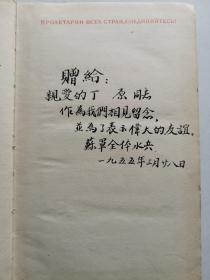 ПРОЛЕТАРИИ ВСЕХ СТРАН, СОЕДИНЯЙТЕСЬ!
贈給:
親愛的丁 原 同志
作為我們相見留念,
並為了表示偉大的友誼.
蘇軍全体水兵
一九五五年 月廿八日